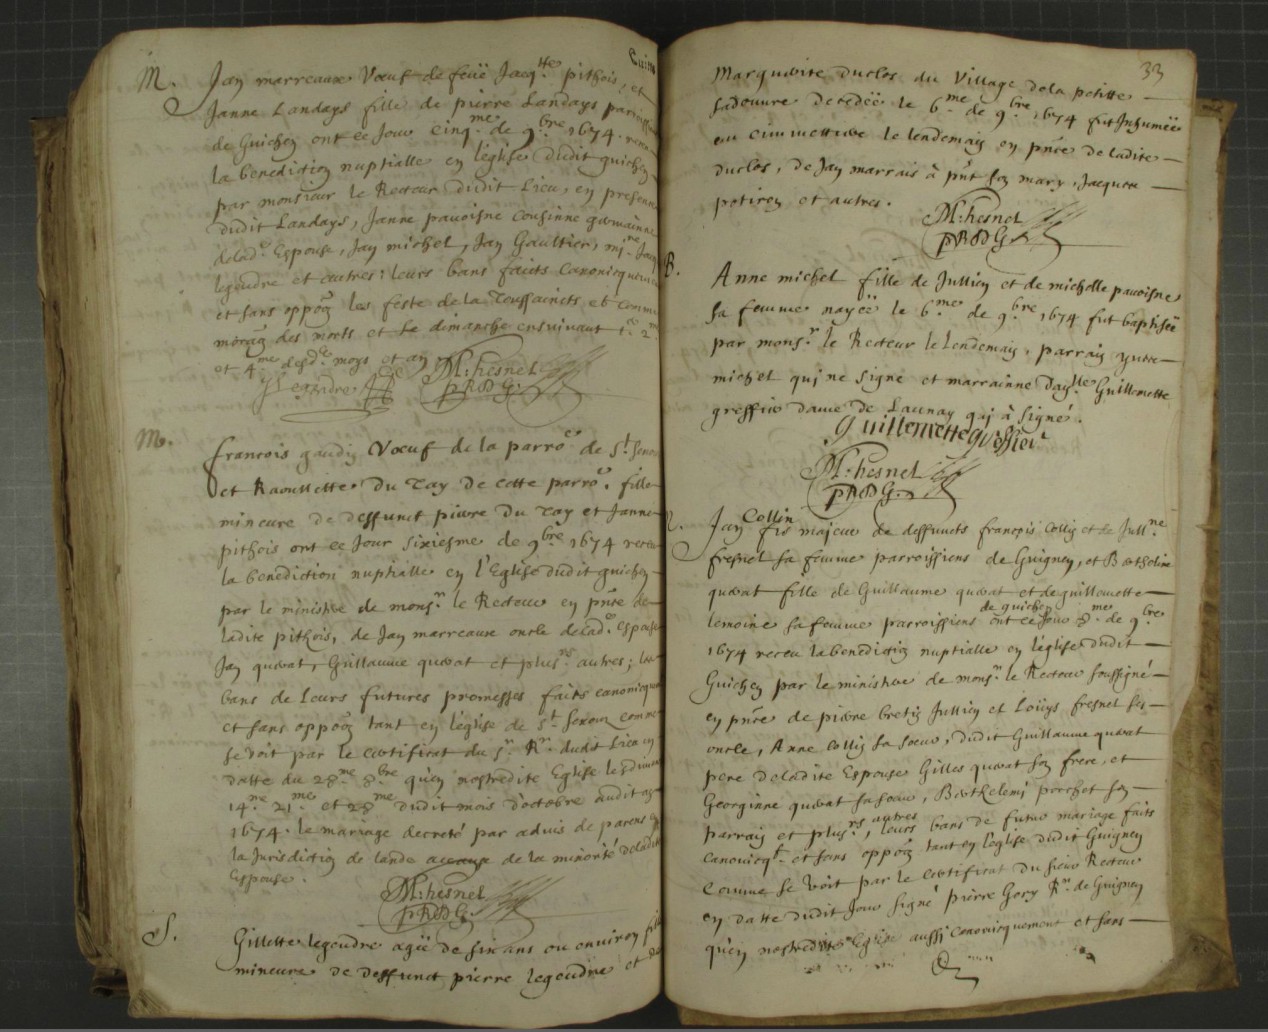 M. Jan marreaux Vœuf de feuë Jacq.tte pithois, et
Janne Landays fille de pierre Landays
de Guichen ont ce Jour Cinq.me de 9.bre 1674
la benediction nuptialle en l'eglise dudit guichen
par monsieur le Recteur dudit Lieu, en
dudit Landays, Janne pauoisne Cousinne germainne
delad. Espouse, Jan michel, Jan Gaultier,
legendre et autres: leurs bans faicts Canonicquem
et sans oppoõn les feste de la Toussaincts et
des morts et le dimanche ensuiuant
et 4.me desd. moys et an M: hesnel
JLegendre pRDG.
M. francois gaudin Vœuf de la parro. de S.t
et Raoullette du Tay de cette parro. fille
mineure de deffunct pierre du Tay et Janne
pithois ont ce Jour Sixiesme de 9.bre 1674 receu
la benediction nuptialle en l'Eglise dudit guichen
par le ministere de mons.r le Recteur en pñce de
ladite pithois, de Jan marreaux oncle delad. Espouse
Jan quevat, Guillaume quevat et plus.rs autres; les
bans de Leurs futures promesses faits canonicquem
et sans oppoõn tant en l'eglise de S.t Senoux comme
se voit par le certificat du S.r R.r dudit Lieu en
datte du 28.me 8.bre qu'en nostredite Eglise les
14.me 21.me et 28.me dudit mois d'octobre audit an
1674. le mariage decreté par aduis de parens
la Jurisdiction de lande de la minorité deladite
Espouse.
M: hesnel
pRDG.
S. Gillette legendre agée de six ans ou environ fille
mineure de deffunct pierre legendre et de
33
Marguerite duclos du Village de la petitte
decedée le 6.me de 9.bre 1674 fut Inhumée
au cimmettiere le lendemain en pñce de ladite
duclos, de Jan marrais à pñt son mary, Jacquette
et autres.
M: hesnel
pRDG
B. Anne michel fille de Jullien et de michelle pauoisne
sa femme nayée le 6.me de 9.bre 1674 fut baptisée
par mons.r le Recteur le Lendemain, parrain
michel qui ne signe et marrainne Guillemette
greffier dame de Launay qui à signé.
Guillemette Greffier
M: hesnel
pRDG.
Jan Collin fils majeur de deffuncts françois Collin et de Jull.ne
fresnel sa femme parroissiens de Guigney, et Berthelinne
quevat fille de Guillaume quevat et de guillemette
lemoine sa femme parroissiens de guichen ont ce Jour 8.me de 9.bre
1674 receu la benediction nuptialle en l'eglise dudit
Guichen par le ministere de mons.r le Recteur soussigné
en pñce de pierre bretin Jullien et Louys fresnel ses
oncle, Anne Collin sa sœur, dudit Guillaume quevat
pere deladite Espouse Gilles quevat son frere, et
Georginne quevat sa sœur, Berthelemi porchet son
parrain et plus.rs autres, leurs bans de futur mariage faits
canonicq.t et sans oppoõn tant en l'eglise dudit Guigney
Comme se voit par le certificat du sieur Recteur
en datte dudit Jour signé pierre Gory R.r de Guigney
qu'en nostredite Eglise aussi canonicquement et sans